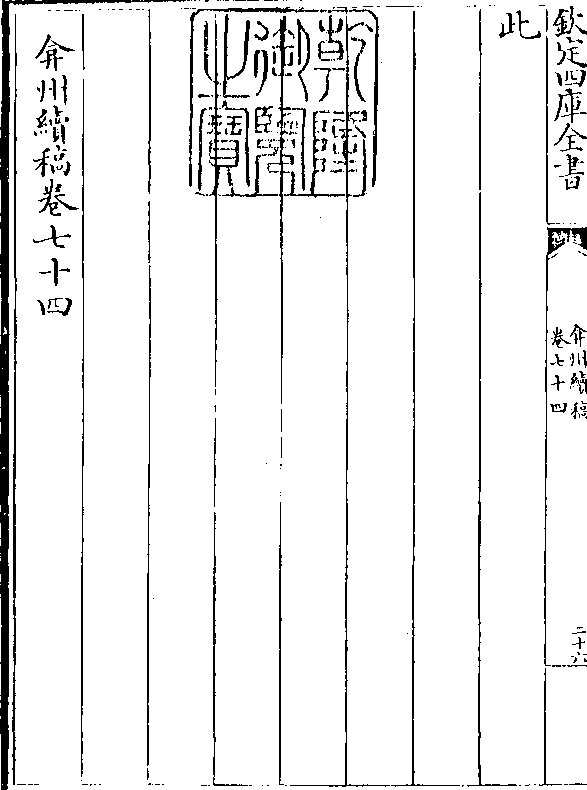 欽定四庫全書
弇州續稿
卷七十四
二十六
此
乾隆
御覽
之寶
弇州續稿卷七十四